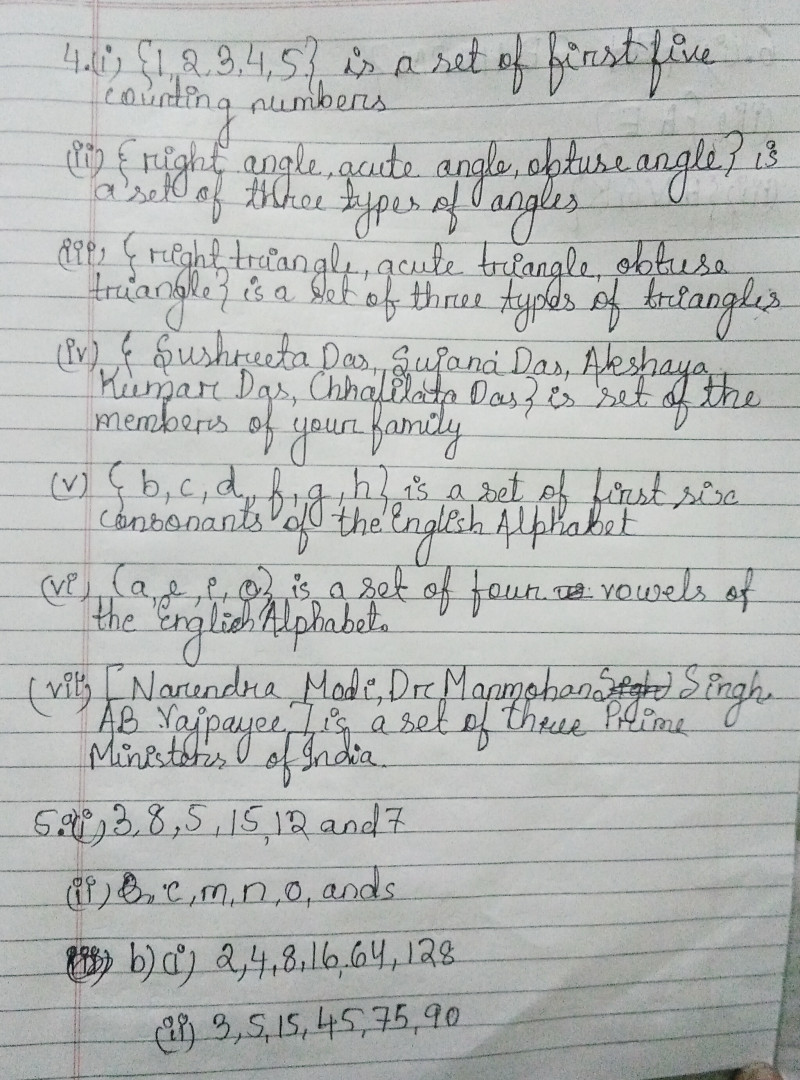 4.(i) {1,2,3,4,5} is a set of first five
counting numbers
(ii) {right angle, acute angle, obtuse angle} is
a set of three types of angles
(iii) {right triangle, acute triangle, obtuse
triangle} is a set of three types of triangles
(iv) { Sushreeta Das, Sujana Das, Akshaya
Kumar Das, Das} is set of the
members of your family
(v) { b, c, d, f, g, h} is a set of first six
consonants of the English Alphabet
(vi) {a, e, i, o} is a set of four vowels of
the English Alphabet.
(vii) [Narendra Modi, Dr Manmohan Singh,
AB Vajpayee] is a set of three Prime
Ministers of India.
5.a(i) 3, 8, 5, 15, 12 and 7
(ii) e, c, m, n, o, and s
b) (i) 2, 4, 8, 16, 64, 128
(ii) 3, 5, 15, 45, 75, 90